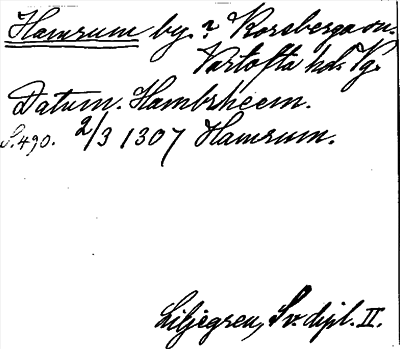 Hamrum by.? Korsberga sn.
Vartofta hd. Vg.
Datum. Hambrheem.
S. 490. 2/3 1307 Hamrum.
Liljegren, Sv. dipl. II.